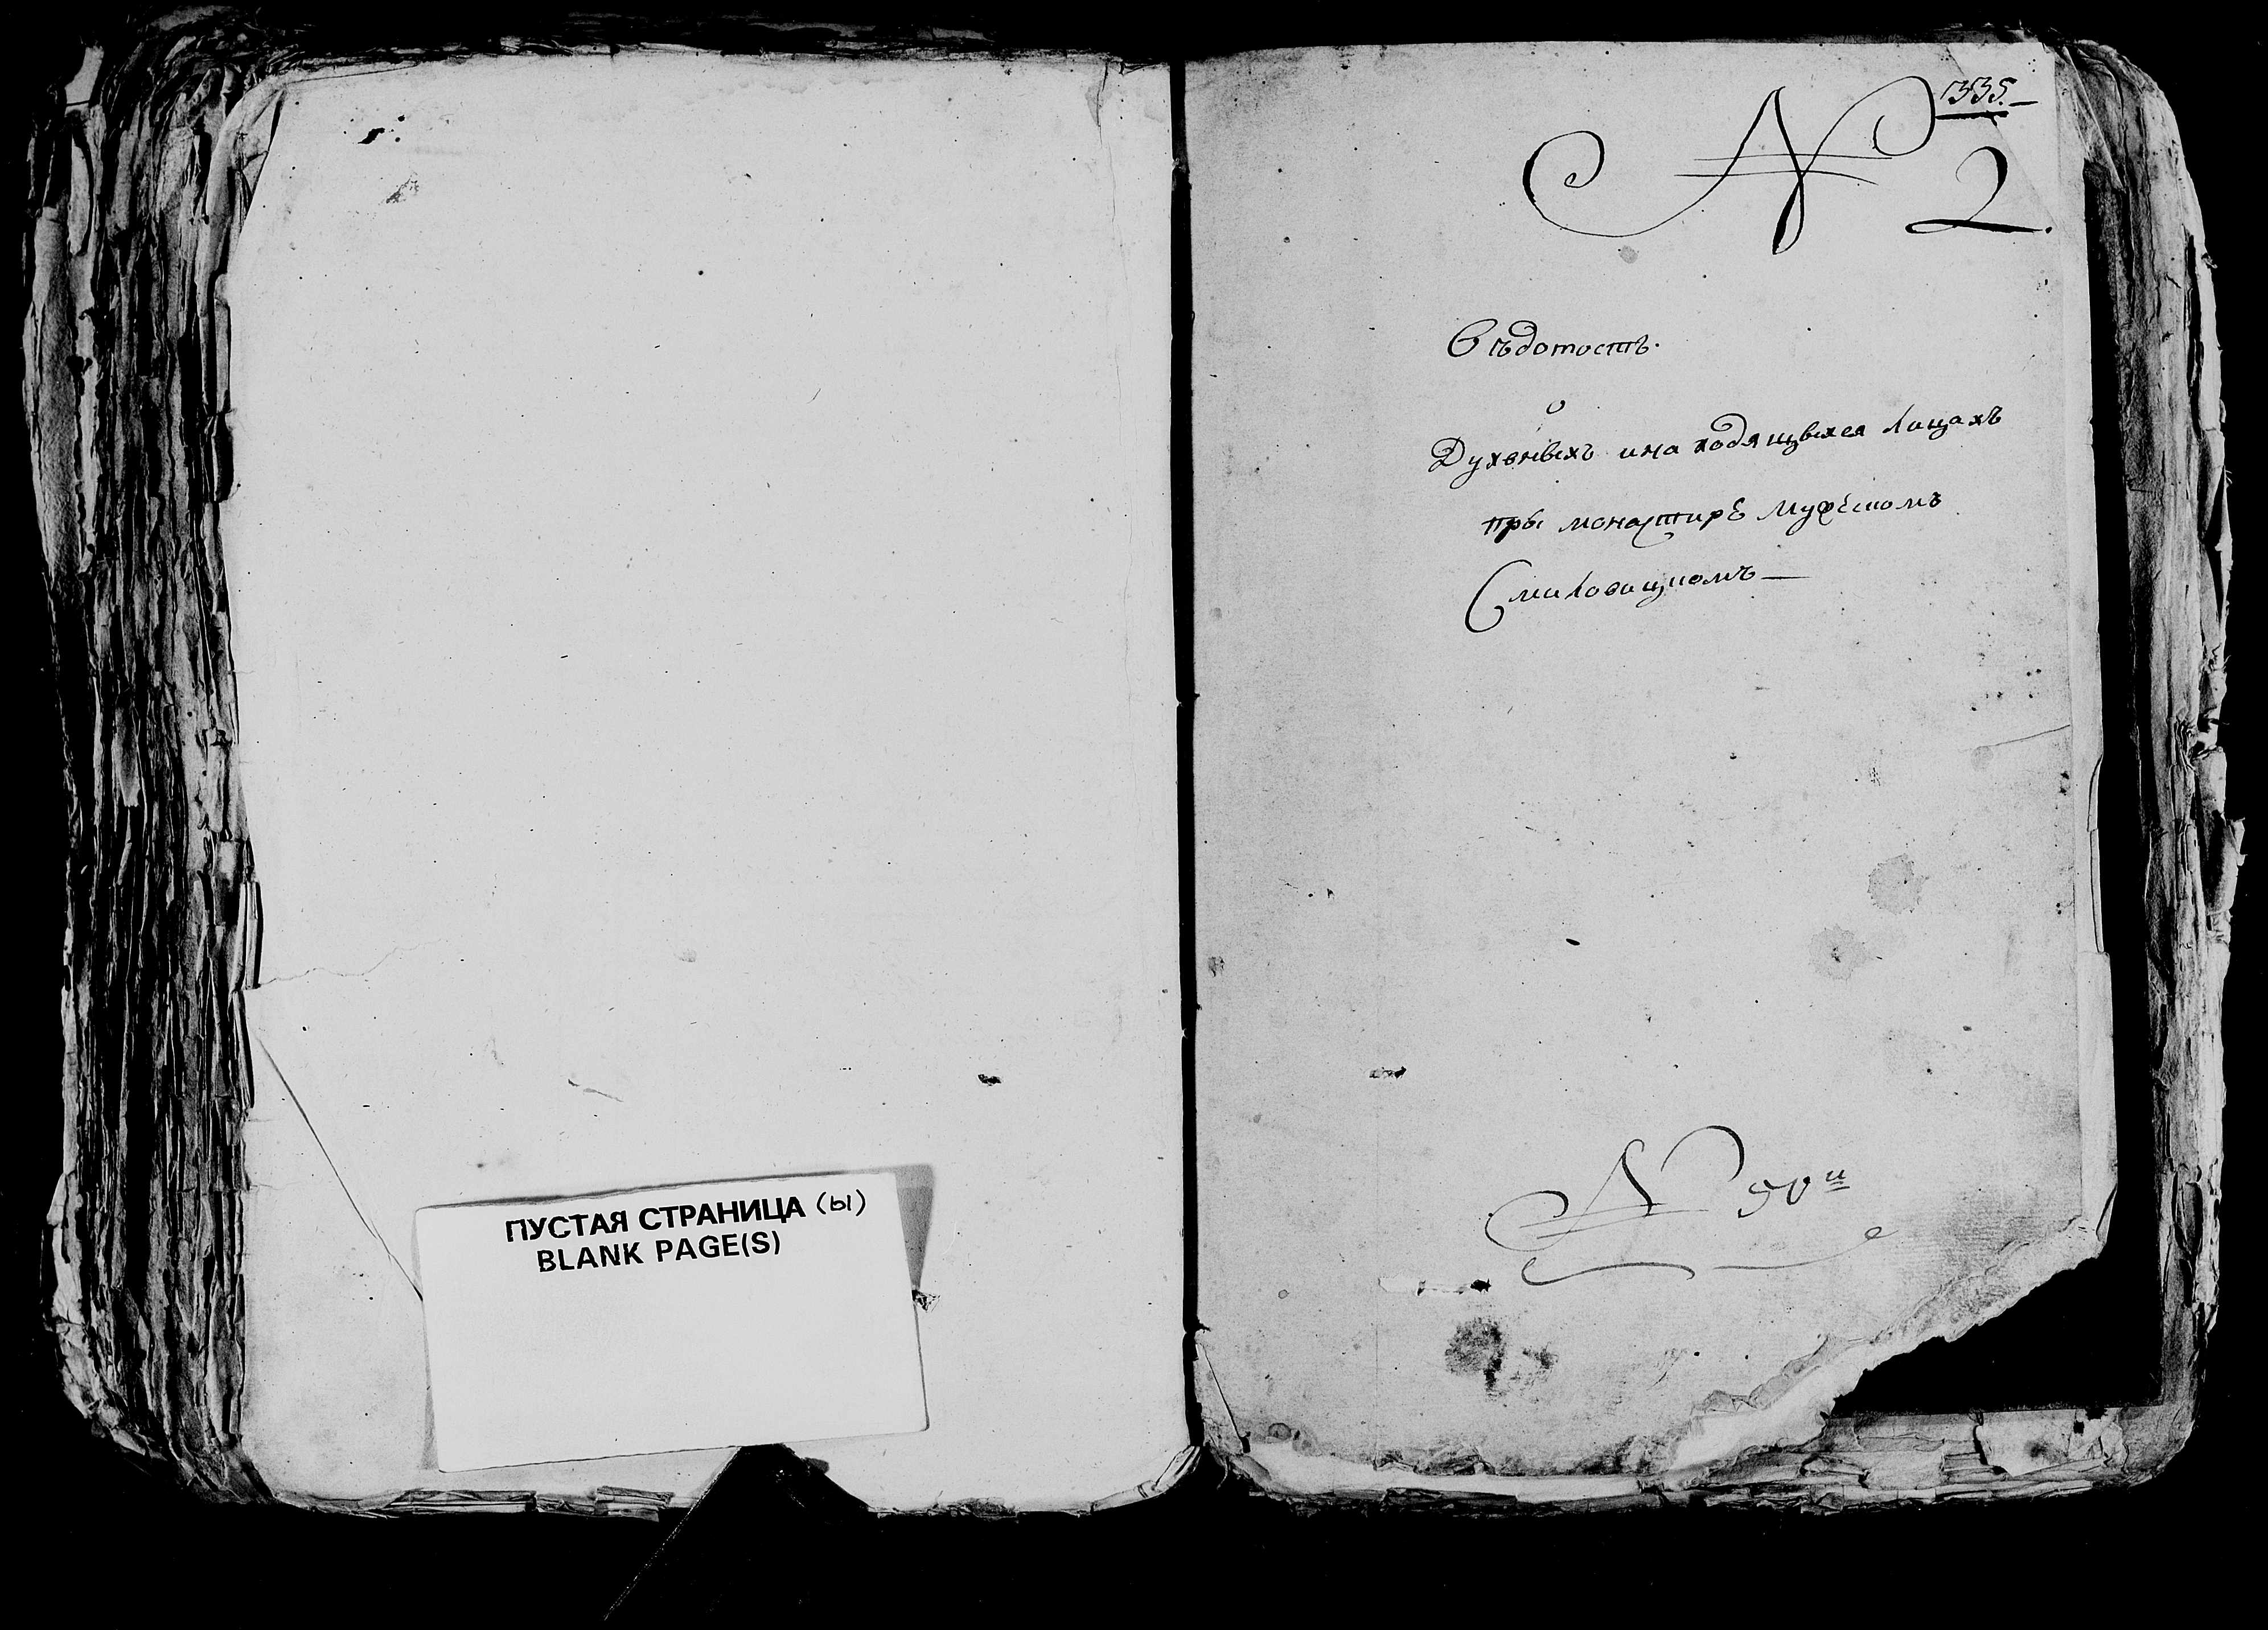 ПУСТАЯ СТРАНИЦА (ы)
BLANK PAGE(S)
1335.
№ 2.
Вѣдомость.
о
Духовныхъ инаходящыхся лицахъ
пры монастирѣ мужескомъ
Смиловицкомъ —
№ 50й